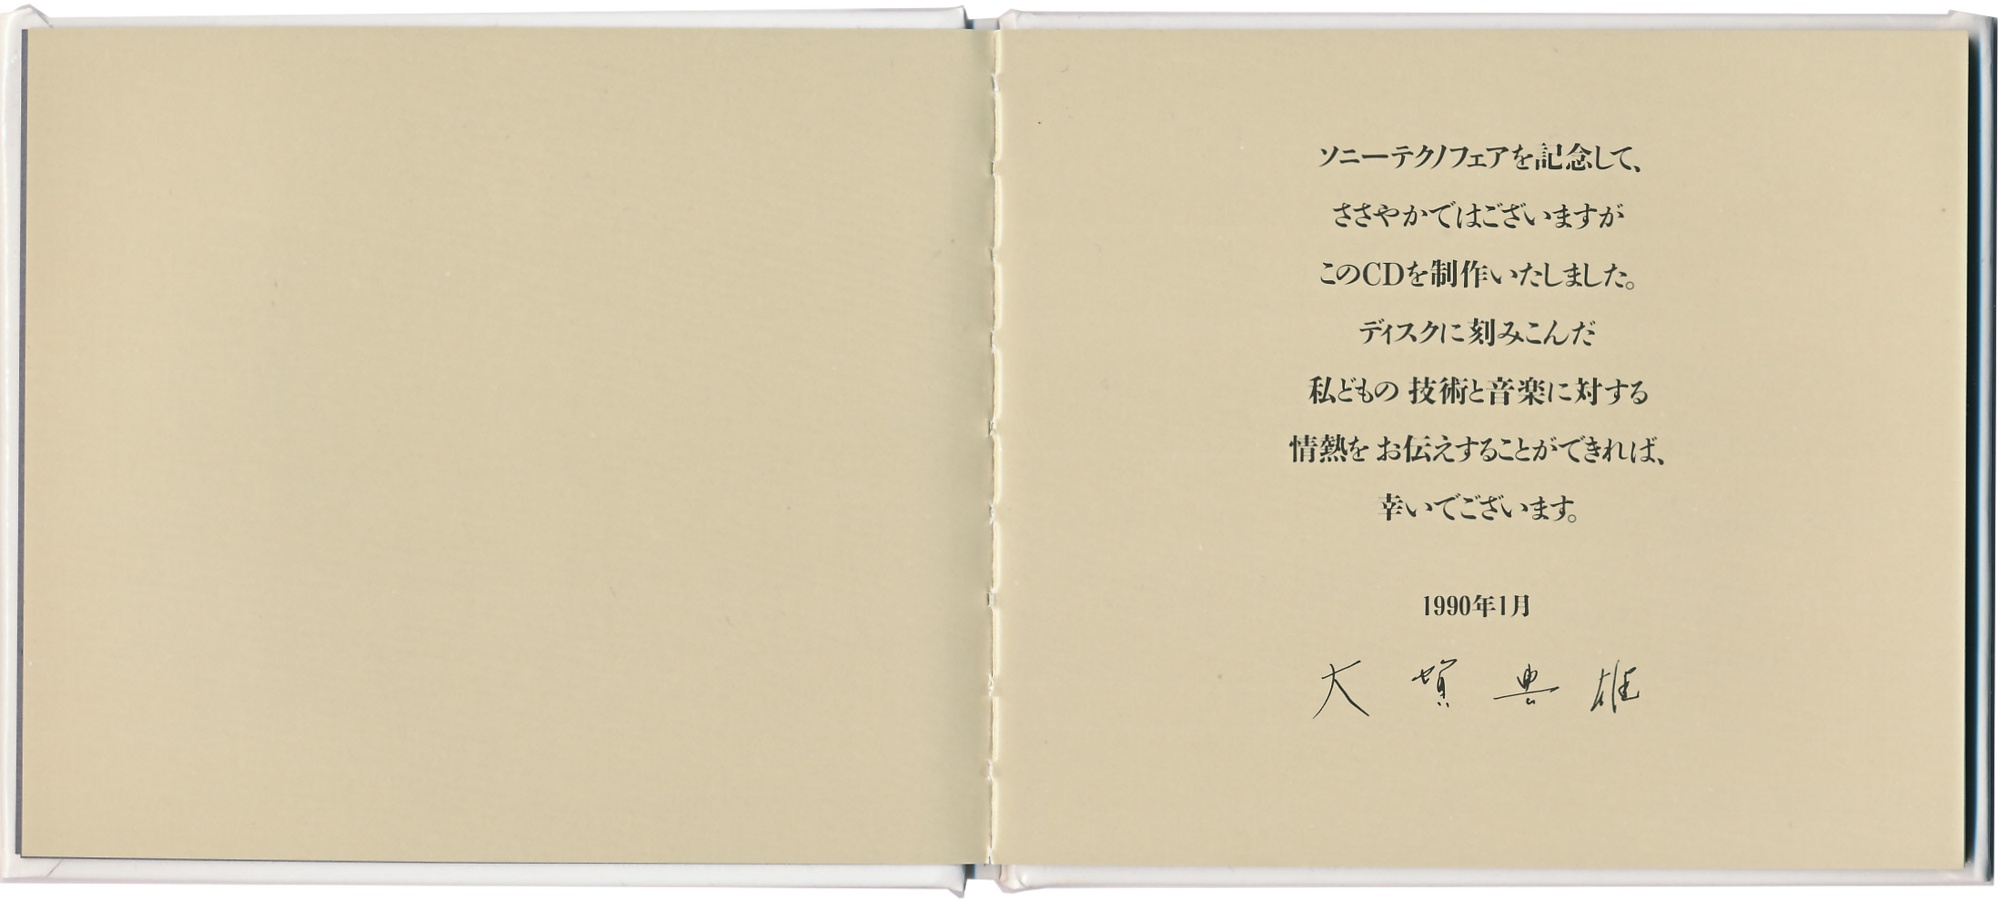 ソニーテクノフェアを記念して、
ささやかではございますが
このCDを制作いたしました。
ディスクに刻みこんだ
私どもの 技術と音楽に対する
情熱を お伝えすることができれば、
幸いでございます。
1990年1月
大賀典雄